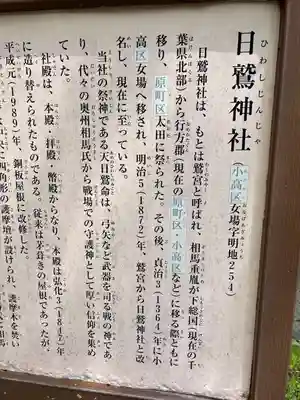 ひわしじんじゃ
日鷲神社
(小高区女場字明地254)
日鷲神社は、もとは鷲宮と呼ばれ、相馬重胤が下総国(現在の千
葉県北部)から行方郡(現在の原町区・小高区など)に移る際ともに
移り、原町区太田に祭られた。その後、貞治3(1364)年に小
高区女場へ移され、明治5(1872)年、鷲宮から日鷲神社と改
名し、現在に至っている。
当社の祭神である天日鷲命は、弓矢など武器を司る戦の神であ
り、代々の奥州相馬氏から戦場での守護神として厚い信仰を集め
ていた。
社殿は、本殿・拝殿・幣殿からなり、本殿は弘化3(1847)年
に造り替えられたものである。従来は茅葺きの屋根であったが、
平成元(1989)年、銅板屋根に改修し
四角形の護摩壇が設けられ、護摩木を焚い